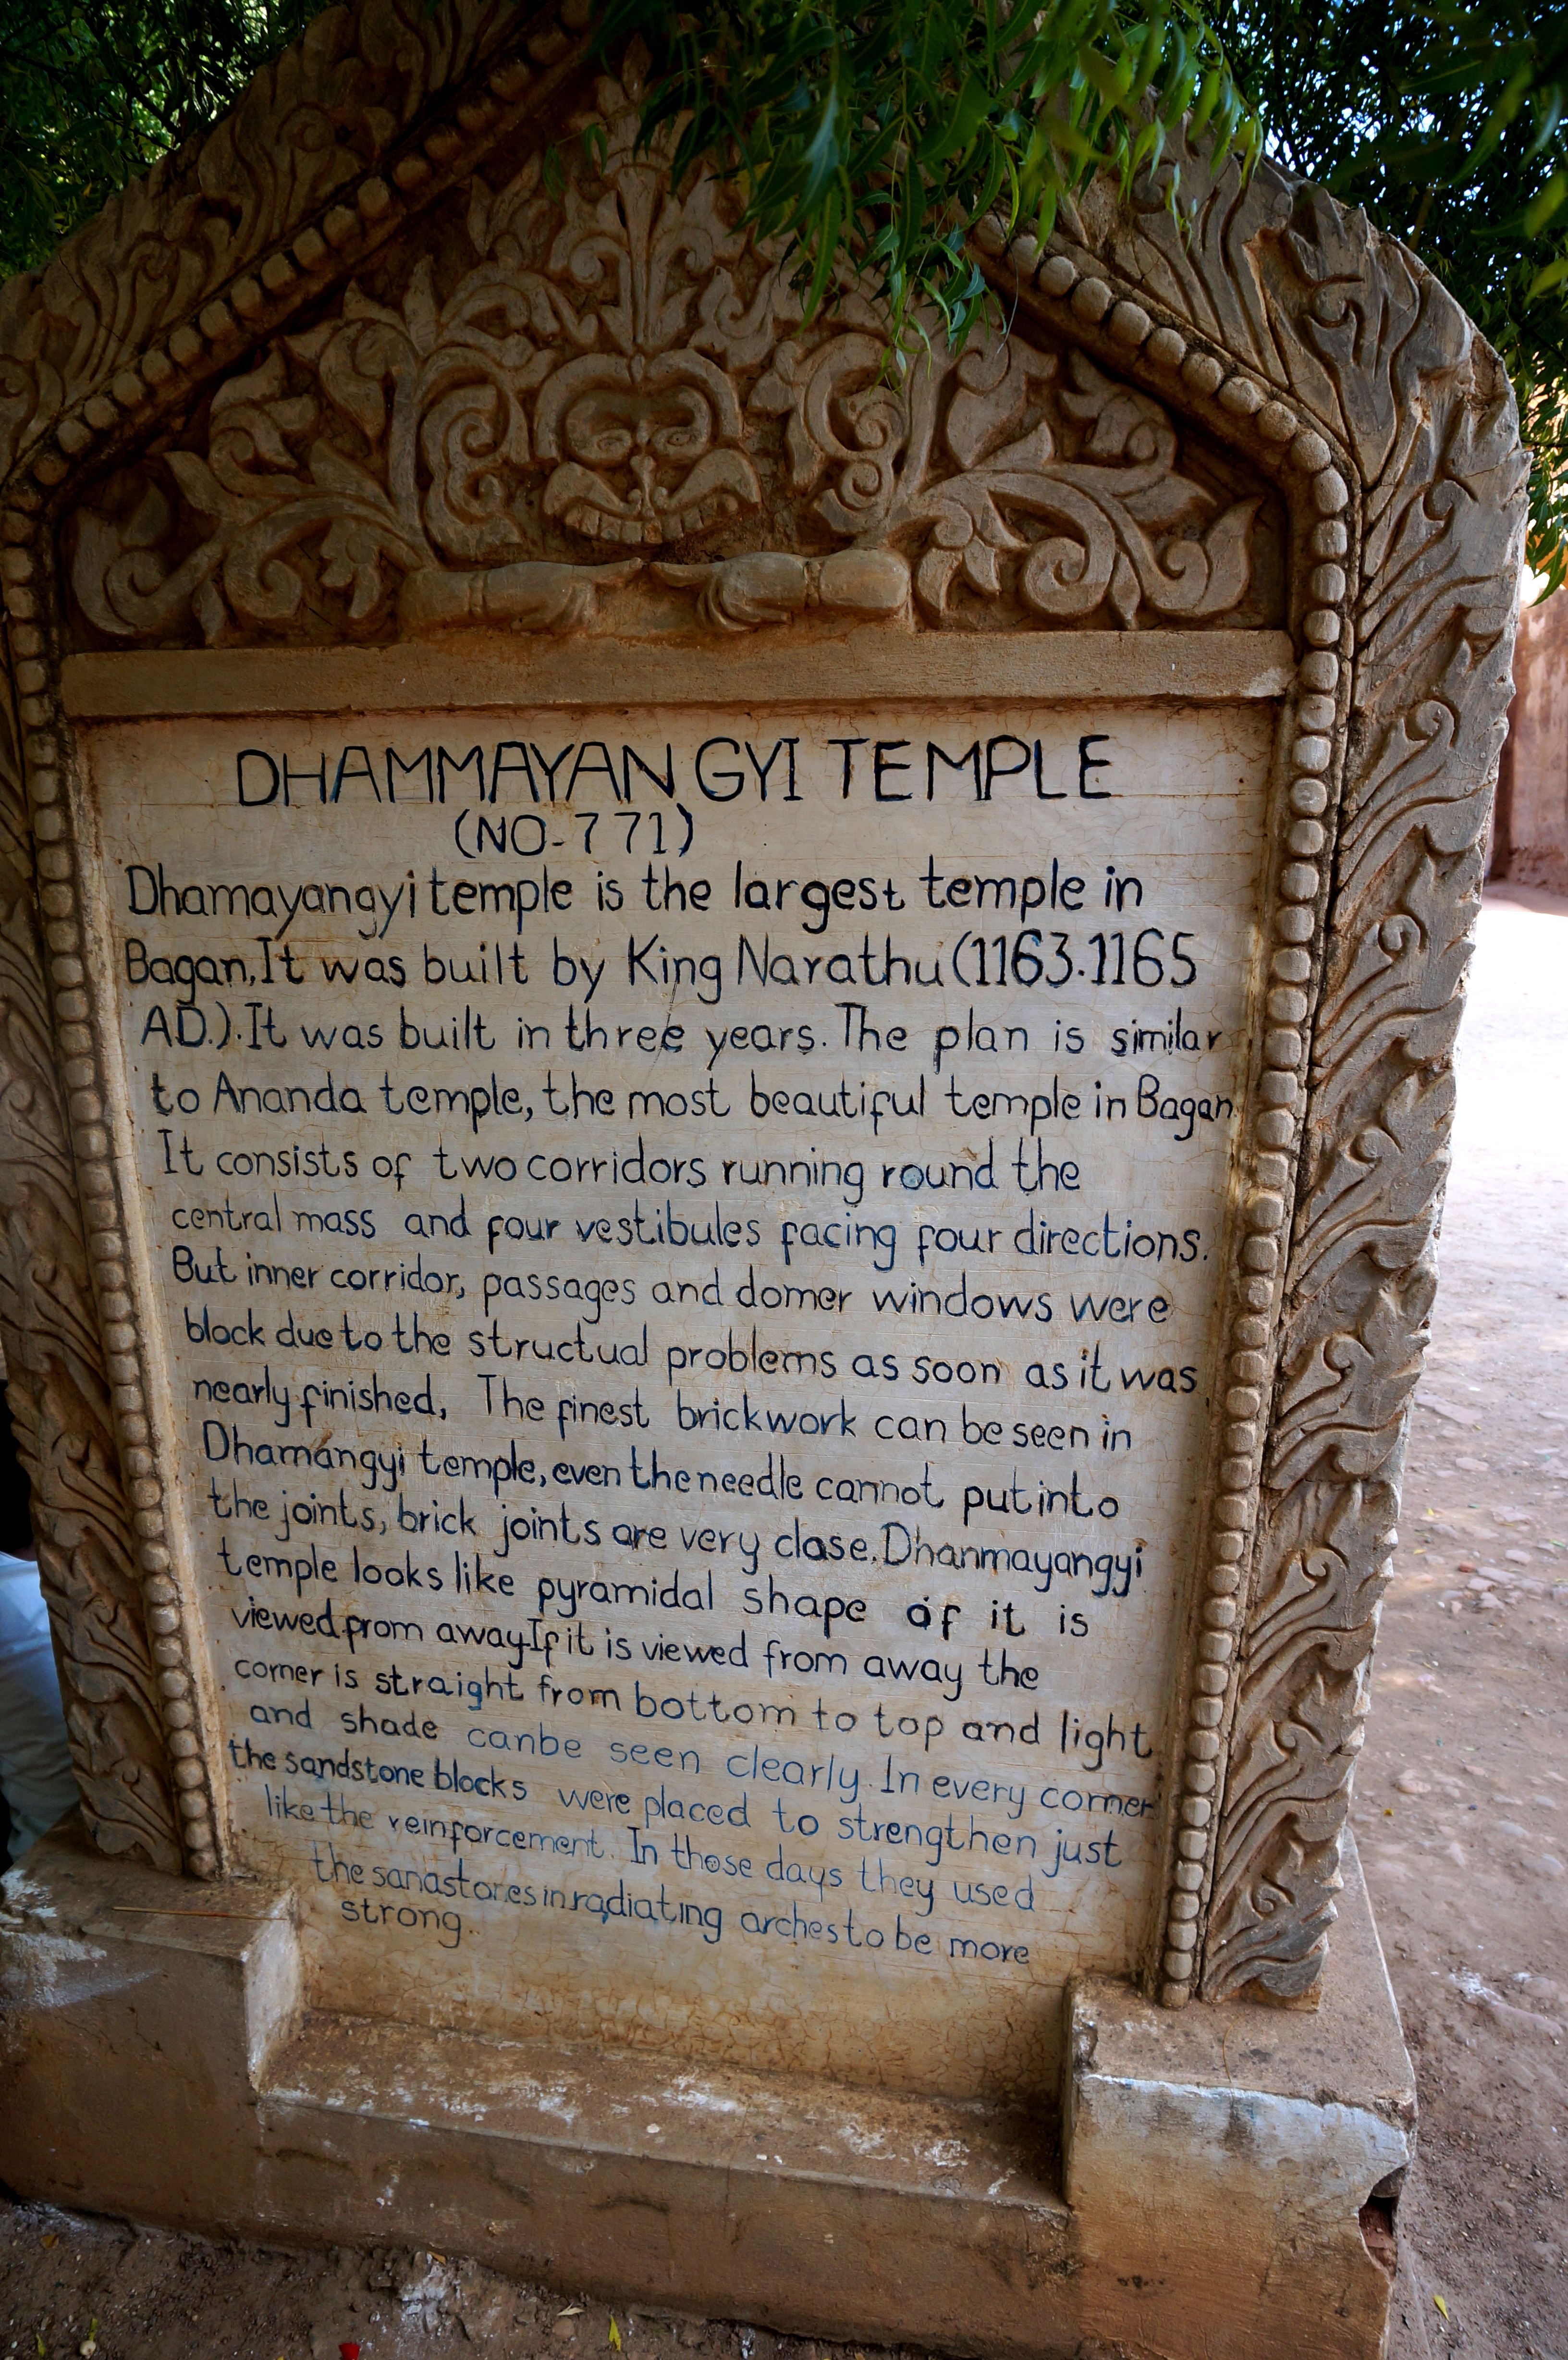 DHAMMAYAN GYI TEMPLE
(NO-771)
Dhamayangyi temple is the largest temple in
Bagan. It was built by King Narathu (1163.1165
AD.). It was built in three years. The plan is similar
to Ananda temple, the most beautiful temple in Bagan
It consists of two corridors running round the
central mass and four vestibules facing four directions.
But inner corridor, passages and domer windows were
block due to the structual problems as soon as it was
nearly finished, The finest brickwork can be seen in
Dhamangyi temple, even the needle cannot put into
the joints, brick joints are very close. Dhanmayangyi
temple looks like pyramidal shape of it is
viewed from away. If it is viewed from away the
corner is straight from bottom to top and light
and shade canbe seen clearly. In every corner
the sandstone blocks were placed to strengthen just
like the reinforcement. In those days they used
the sanastones in radiating arches to be more
strong.